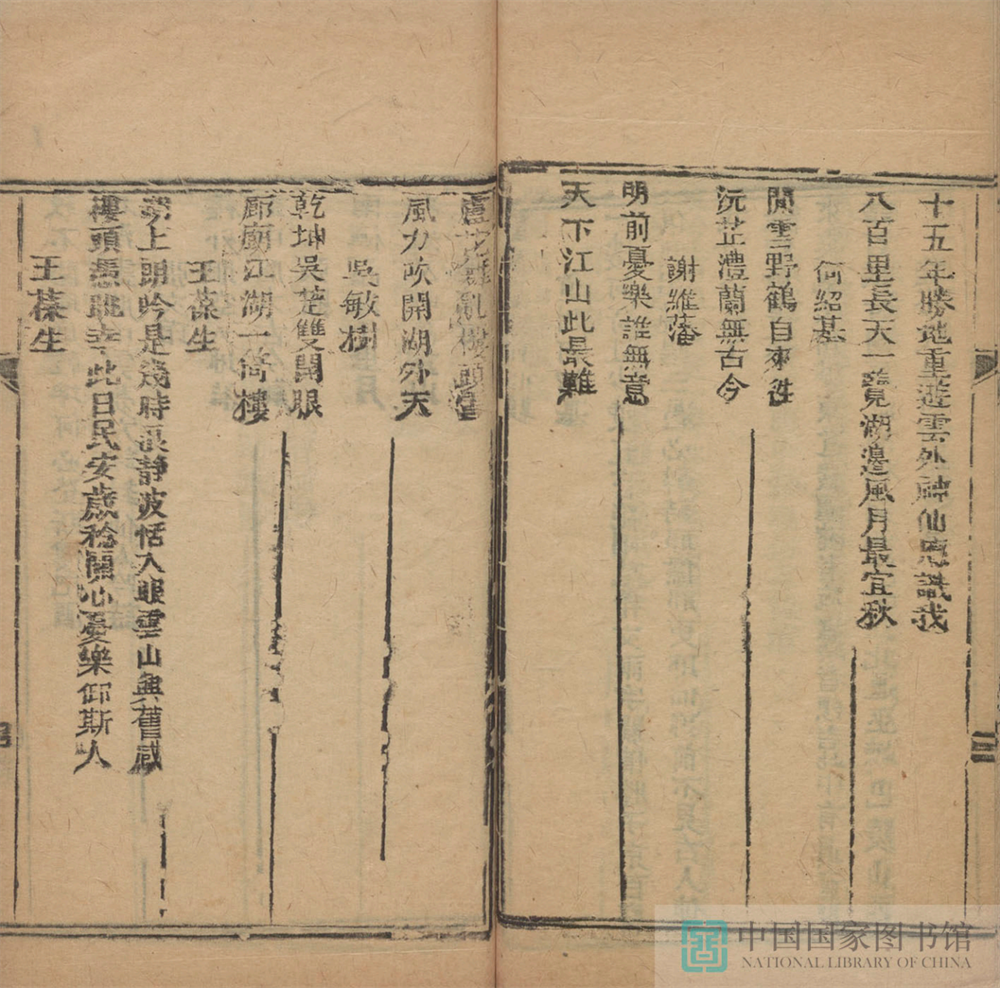 十五年勝地重遊雲外神仙應識我
八百里長天一覽湖邊風月最宜秋
何紹基
閒雲野鶴自來往
沅芷澧蘭無古今
謝維藩
明前憂樂誰無意
天下江山此最難
蘆花亂樓頭
風力吹開湖外天
吳敏樹
乾坤吳楚雙開眼
廊廟江湖一倚樓
王葆生
湖上頭吟是幾時浪靜波恬入眼雲山興舊感
樓頭憑眺幸此日民安歲稔關心憂樂仰斯人
王葆生
中国国家图书馆
NATIONAL LIBRARY OF CHINA